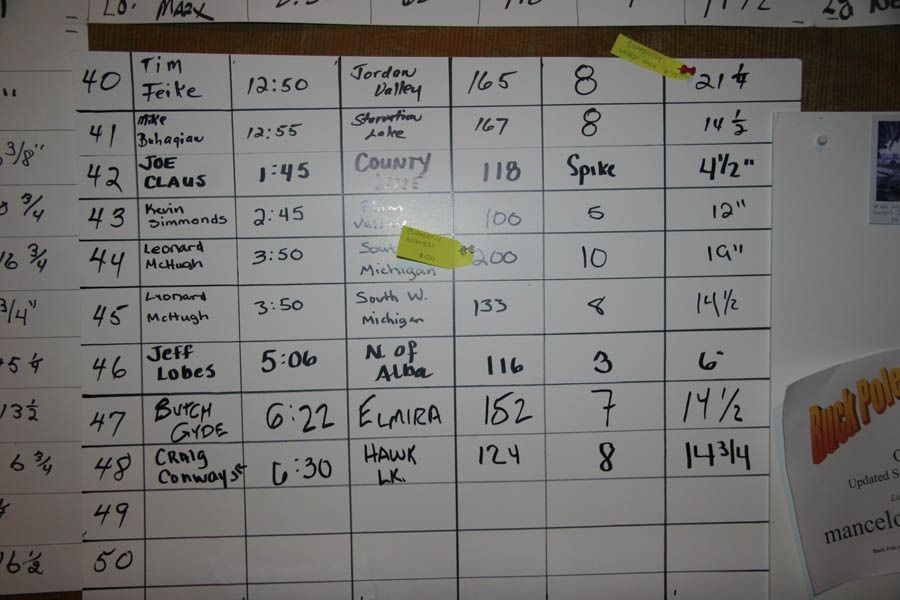 Lo. MARX
40 Tim Feike 12:50 Jordan Valley 165 8 21 1/4
CURRENTLY
41 Mike Buhagian 12:55 Starvation Lake 167 8 14 1/2
42 JOE CLAUS 1:45 COUNTY 118 Spike 4 1/2"
43 Kevin Simmonds 2:45 100 5 12"
44 Leonard McHugh 3:50 Michigan 200 10 19"
CURRENTLY
45 Lyonard McHugh 3:50 South W. Michigan 133 8 14 1/2
46 Jeff Lobes 5:06 N. of Alba 116 3 6"
47 BUTCH GYDE 6:22 ELMIRA 152 7 14 1/2
48 CRAIG Conway 6:30 HAWK LK. 124 8 14 3/4
49
50
3/8"
3/4
16 3/4
3/4"
5 1/4
13 1/2
6 3/4
16 1/2
Buck Pole
Updated S
mancelo